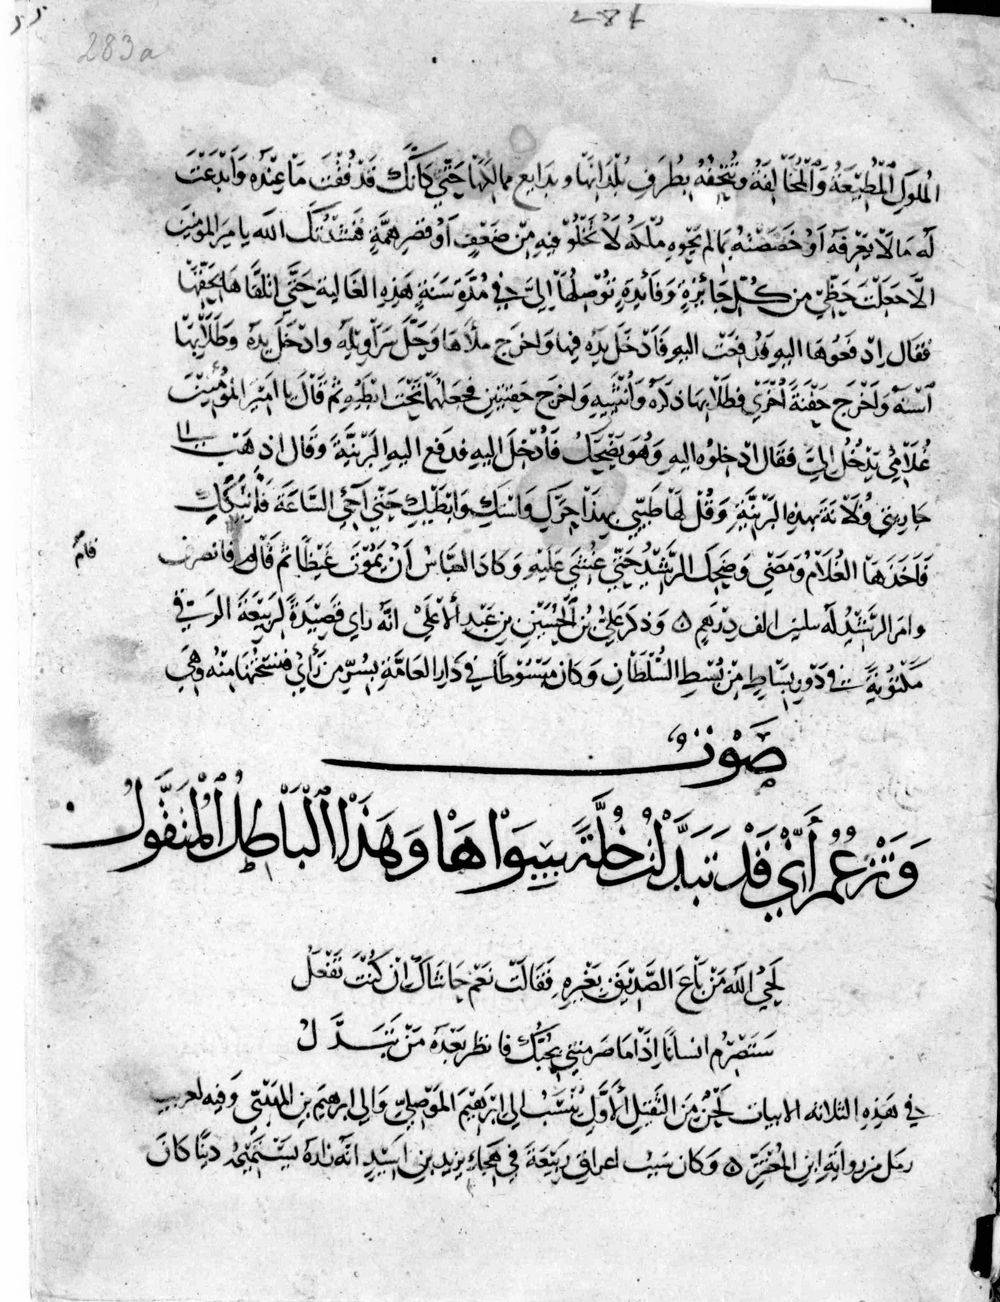 284
283a
الملوك المطيعة والمخالفة وتتحفه بطرف بلدانها وبدايع ممالكها حتى كأنك قد فقت ما عنده وابدعت
له ما لا يعرفه او خصصته بما لم يحوه ملكه لا تخلو فيه من ضعف أو قصر همة نشدتك الله يا مير المومنين
الا جعلت حظي من كل جائزة وفائدة توصلها اليّ في مدة سنة هذه الغالية حتى اتلقاها بحقها
فقال ادفعوها اليه فدفعت اليه فأدخل يده فيها واخرج ملأها وحل سراويله وادخل يده وطلا بها
استه وأخرج حفنة أخرى فطلا بها ذكره وأنثييه واخرج حفنتين فجعلهما تحت ابطيه ثم قال يا امير المؤمنين
غلامي يدخل اليّ فقال ادخلوه اليه وهو يضحك فأدخل اليه فدفع اليه البرنية وقال اذهب الى
جاريتي فلانة بهذه البرنية وقل لها طيبي بهذا حرك واستك وابطيك حتى اجي الساعة فأنيكك
فاخذها الغلام ومضى وضحك الرشيد حتى غشي عليه وكاد العباس أن يموت غيظا ثم قام فانصرف
قام
وامر الرشيد له بثلثين الف درهم ٥ وذكر علي بن الحسين بن عبد الأعلى انه راي قصيدة لربيعة الرقي
مكتوبة في دور بساط من بسط السلطان وكان مبسوطا في دار العامة بسر من رأي فنسختها منه وهي
صوت
وتزعم أني قد تبدلت خلة سواها وهذا الباطل المتقول
لحى الله من باع الصديق بغيره فقالت نعم حاشاك ان كنت تفعل
ستصرم انسانا إذا ما صرمتني بحبك فانظر بعده من تبدل
في هذه الثلاثة الابيات لحن من الثقيل الأول ينسب الي ابرهيم الموصلي والي ابرهيم بن المهدي وفيه لعريب
رمل من رواية ابن المعتز ٥ وكان سبب اعراق ربيعة في هجاء يزيد بن اسيد انه زاره يستميحه دينا كان